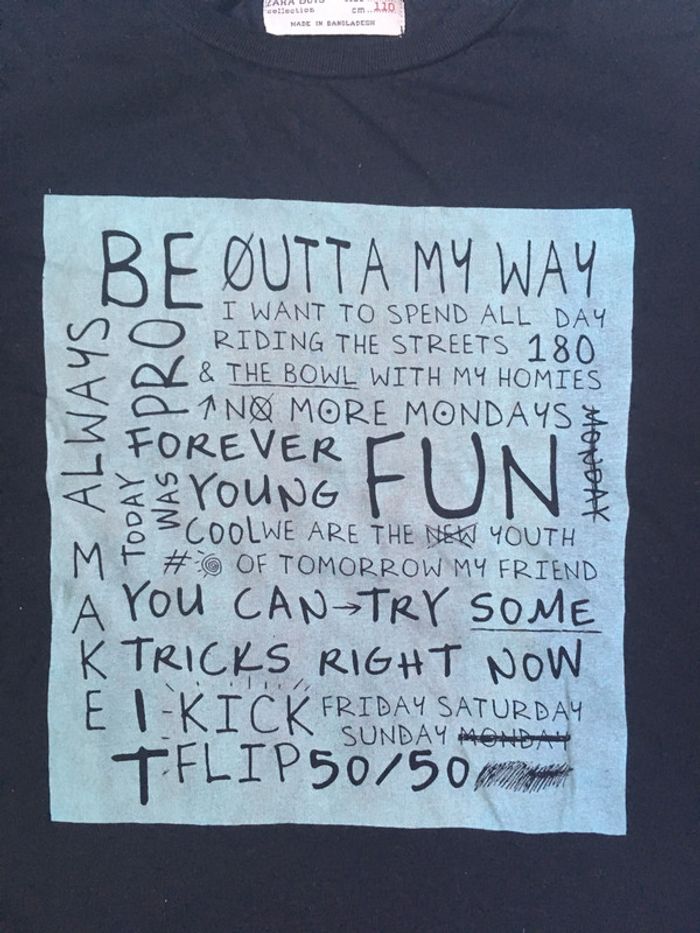 collection
cm 110
MADE IN BANGLADESH
BE ØUTTA MY WAY
I WANT TO SPEND ALL DAY
RIDING THE STREETS 180
& THE BOWL WITH MY HOMIES
PRO
↑ NO MORE MONDAYS
ALWAYS
FOREVER
FUN
MONDAY
TODAY
WAS
YOUNG
COOL WE ARE THE NEW YOUTH
# OF TOMORROW MY FRIEND
MAKE
YOU CAN→TRY SOME
TRICKS RIGHT NOW
IT
KICK FRIDAY SATURDAY
SUNDAY MONDAY
FLIP 50/50